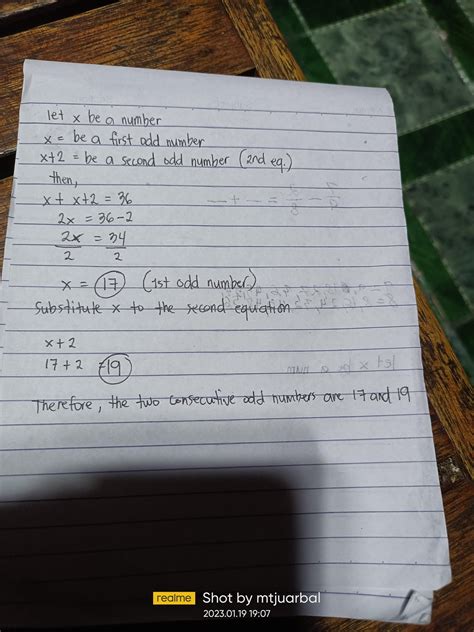 let x be a number
x = be a first odd number
x+2 = be a second odd number (2nd eq.)
then,
x + x+2 = 36
2x = 36-2
2x = 34
2 2
x = 17 (1st odd number)
Substitute x to the second equation
x+2
17+2 =19
Therefore, the two consecutive odd numbers are 17 and 19
realme Shot by mtjuarbal
2023.01.19 19:07